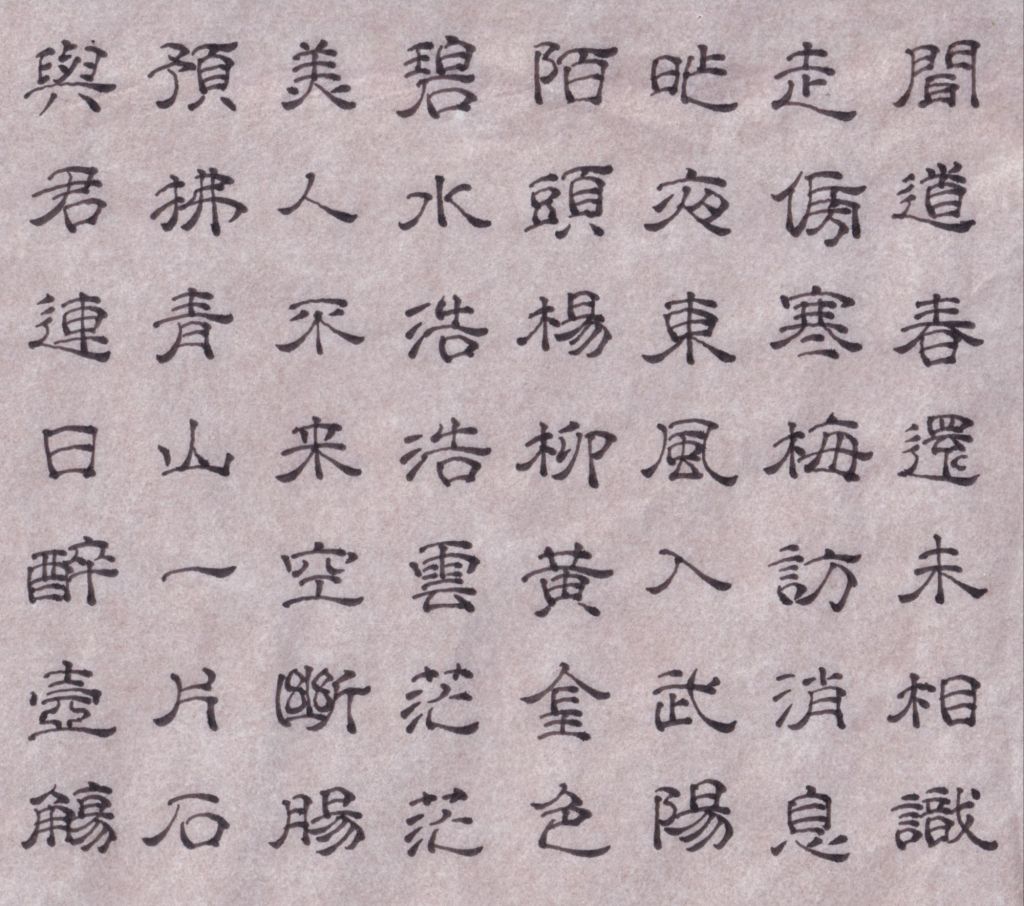 聞道春還未相識
走傍寒梅訪消息
昨夜東風入武陽
陌頭楊柳黃金色
碧水浩浩雲茫茫
美人不来空斷腸
預拂青山一片石
與君連日醉壺觴